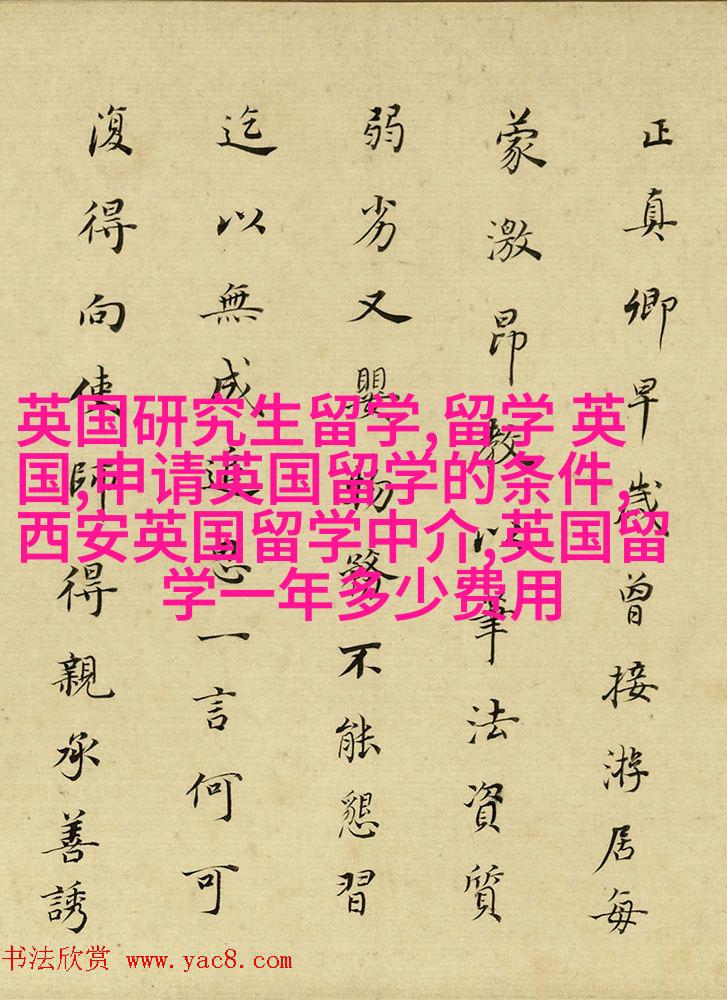 正真卿早歲曾接游居每
蒙激昂教以筆法資質
弱劣又嬰物務不能懇習
迄以無成追思一言何可
復得向使師得親承善誘
英国研究生留学,留学 英
国,申请英国留学的条件,
西安英国留学中介,英国留
学一年多少费用
书法欣赏 www.yac8.com